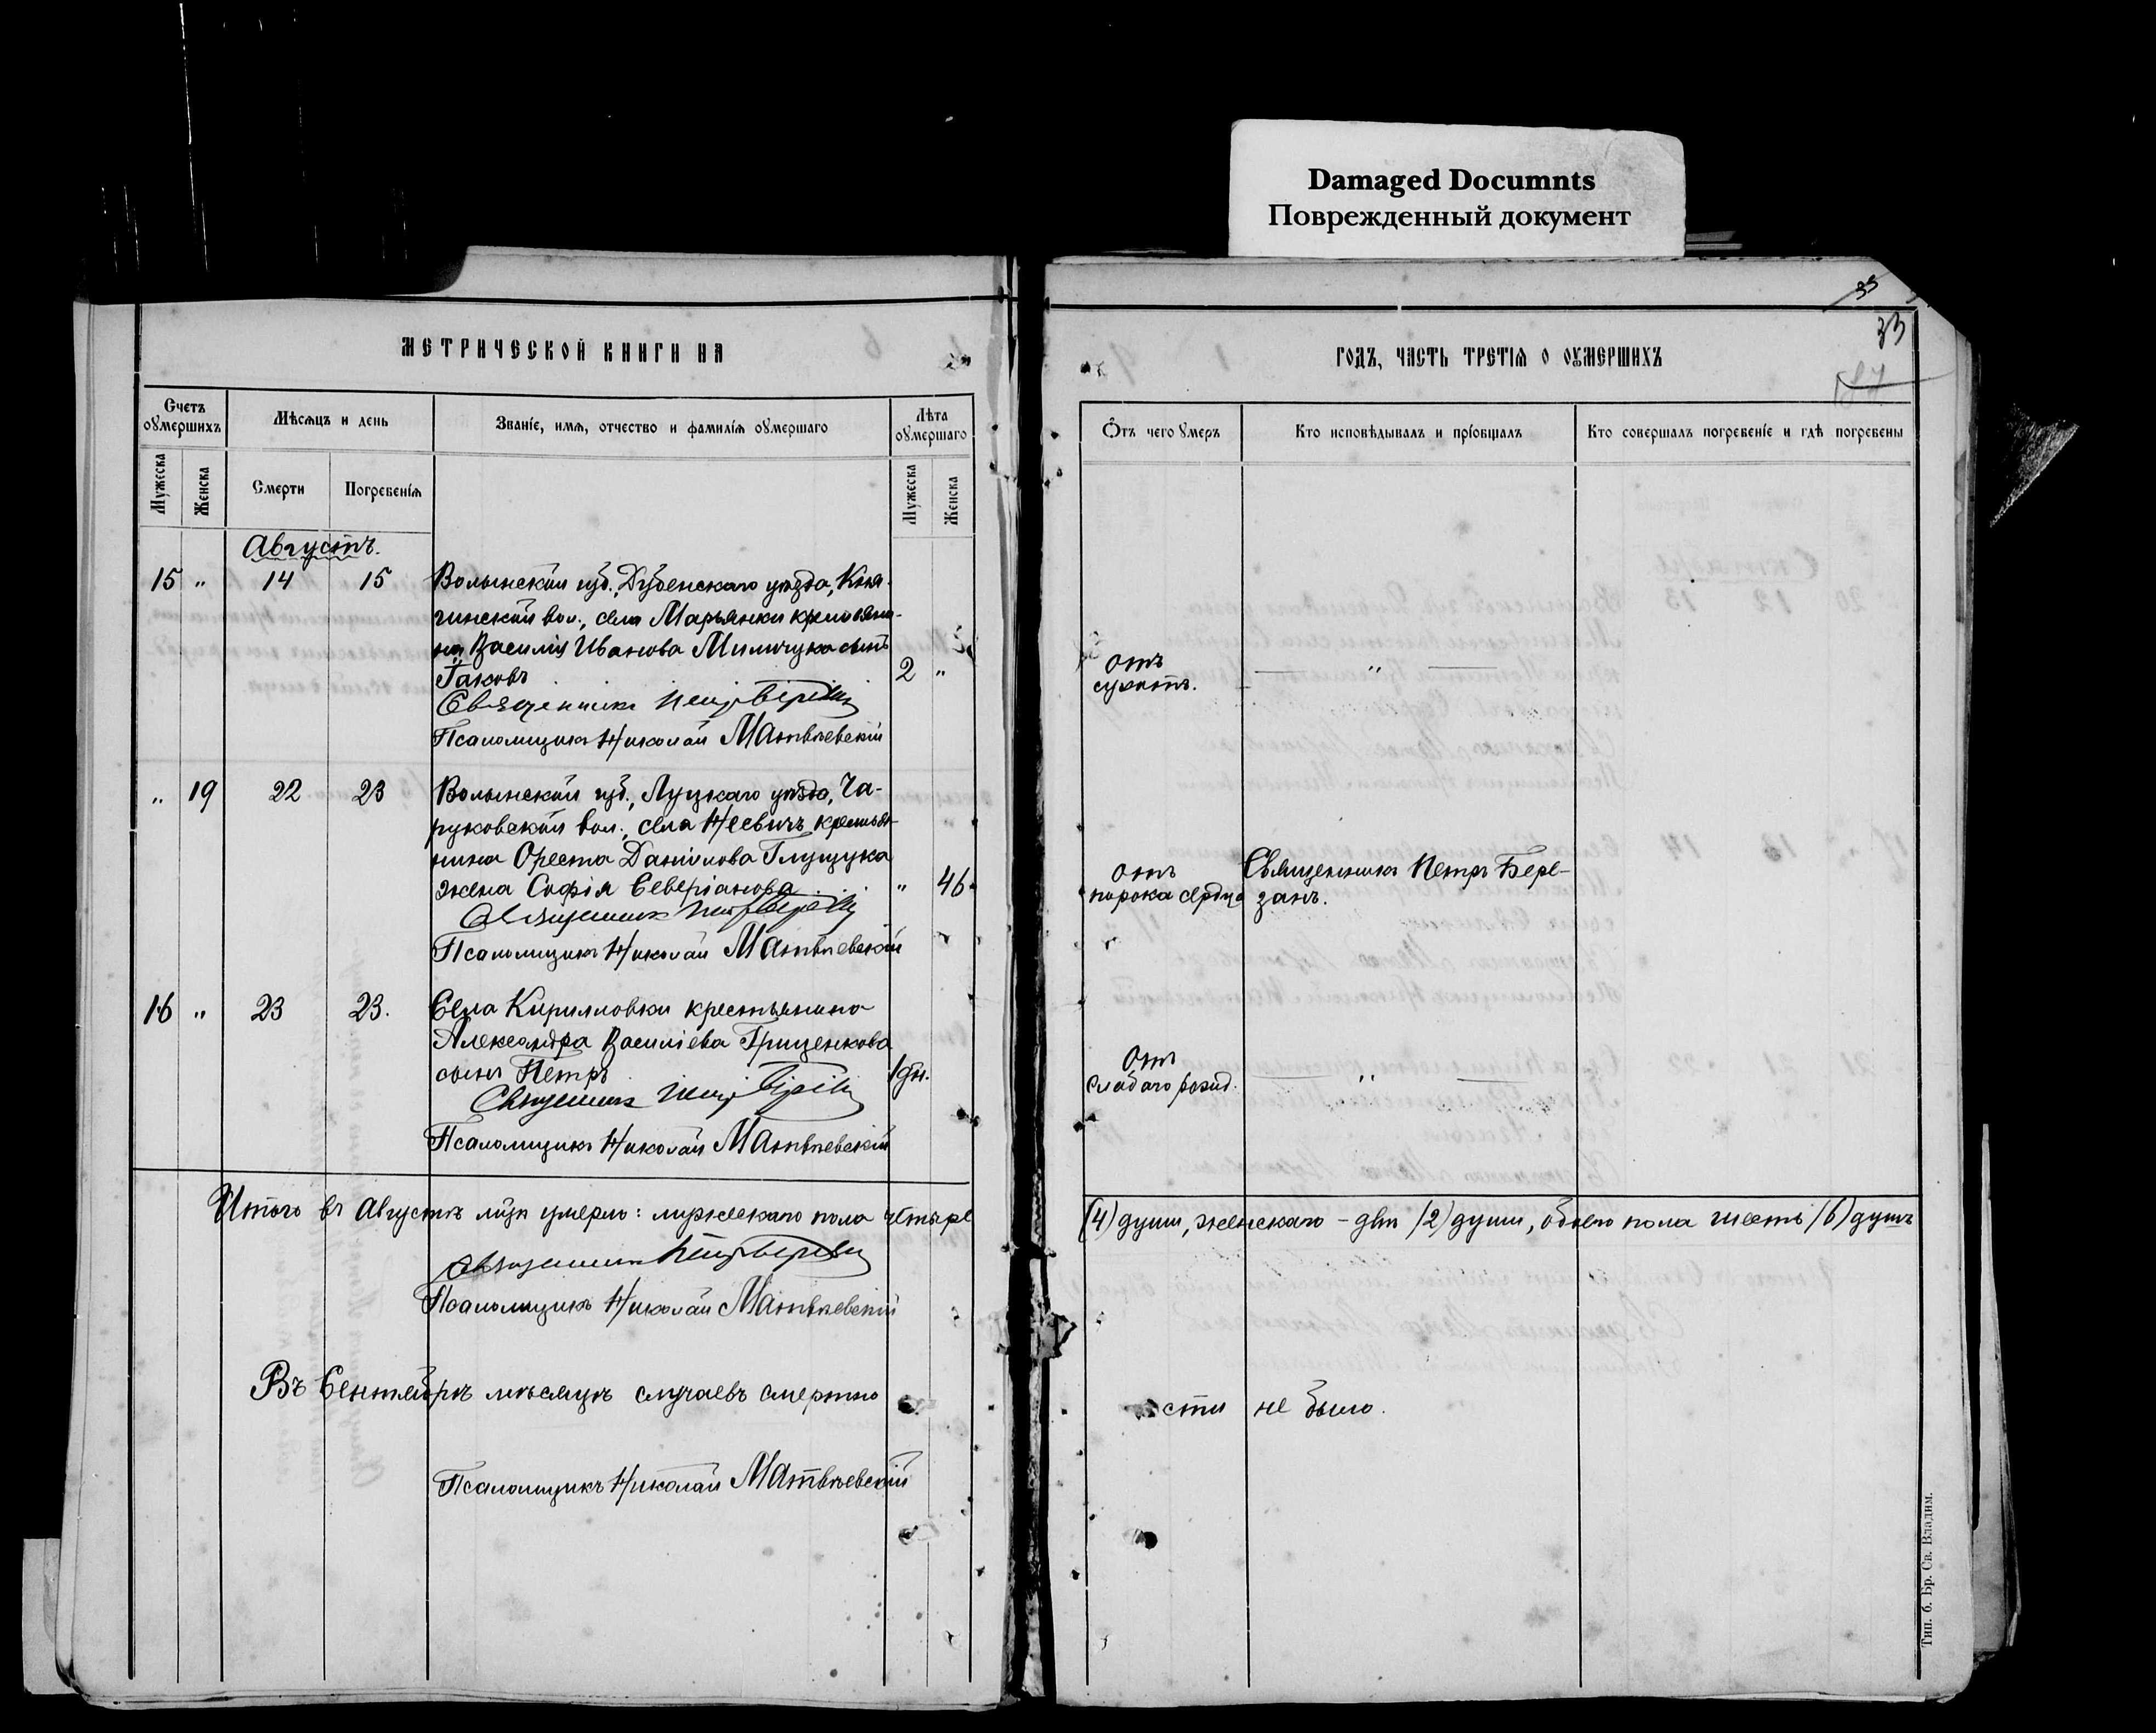 Damaged Documnts
Поврежденный документ
МЕТРИЧЕСКОЙ КНИГИ НА
Счетъ оумершихъ
Мѣсяцъ и день
Званіе, имя, отчество и фамилія оумершаго
Лѣта оумершаго
Мужеска
Женска
Смерти
Погребенія
Мужеска
Женска
Августъ.
15 " 14 15 Волынской губ., Дубенскаго уѣзда, Кня-
гинской вол., села Марьянки крестьяни-
на Василія Иванова Мимчука сынъ
Іаковъ 2 "
Священникъ Петръ
Псаломщикъ Николай Матвѣевскій
" 19 22 23 Волынской губ., Луцкаго уѣзда, Ча-
руковской вол., села Несвичъ крестья-
нина Ореста Данилова Глущука
жена Софія Северіанова " 46
Священникъ Петръ
Псаломщикъ Николай Матвѣевскій
16 " 23 23. Села Кирилловки крестьянина
Александра Василіева Гриценкова
сынъ Петръ 1 дн.
Священникъ Петръ
Псаломщикъ Николай Матвѣевскій
Итого въ Августѣ мцѣ умерло: мужескаго пола четыре
Священникъ Петръ
Псаломщикъ Николай Матвѣевскій
Въ Сентябрѣ мѣсяцѣ случаевъ смертно
Псаломщикъ Николай Матвѣевскій
33
33
87
ГОДЪ, ЧАСТЬ ТРЕТІЯ О ОУМЕРШИХЪ
Отъ чего умеръ
Кто исповѣдывалъ и пріобщалъ
Кто совершалъ погребеніе и гдѣ погребены
отъ
сухотъ. "
отъ Священникъ Петръ Бере-
порока сердца занъ.
отъ
слабаго рожд. "
(4) души, женскаго - двѣ (2) души, обоего пола шесть (6) душъ
сти не было.
Тип. б. Бр. Св. Владим.